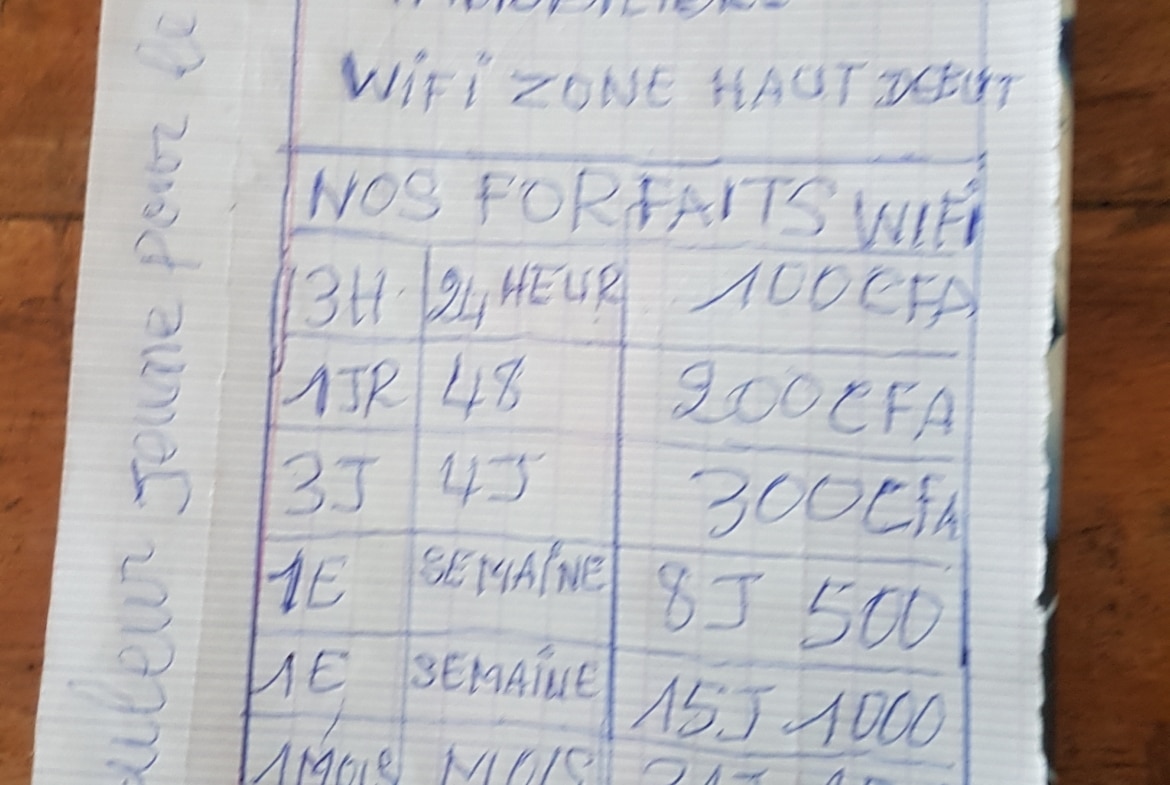 WiFi ZONE HAUT DEBIT
NOS FORFAITS WIFI
3H 24 HEUR 100 CFA
1JR 48 200 CFA
3J 4J 300 CFA
1E SEMAINE 8J 500
1E SEMAINE 15J 1000
1MOIS MOIS
Jaune pour le